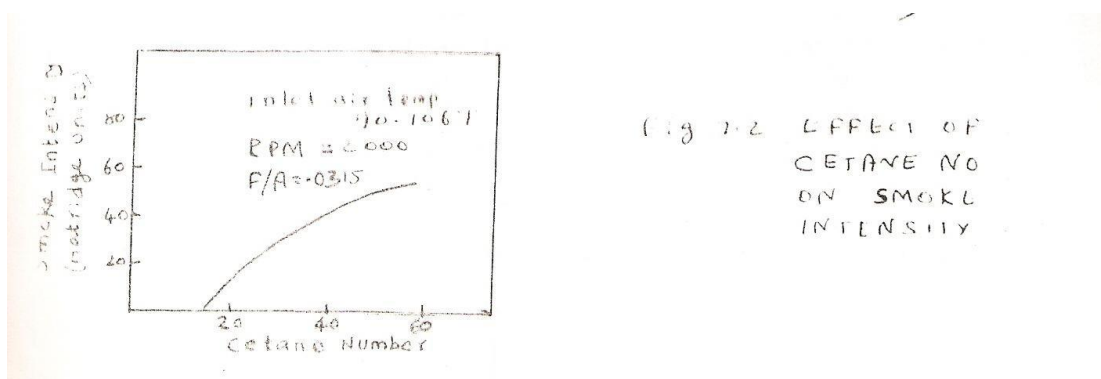 Smoke Intensity
(hatridge units)
80
60
40
20
Inlet air temp
90-106°F
RPM = 2000
F/A = .0315
20 40 60
Cetane Number
Fig 2.2 EFFECT OF
CETANE NO
ON SMOKE
INTENSITY